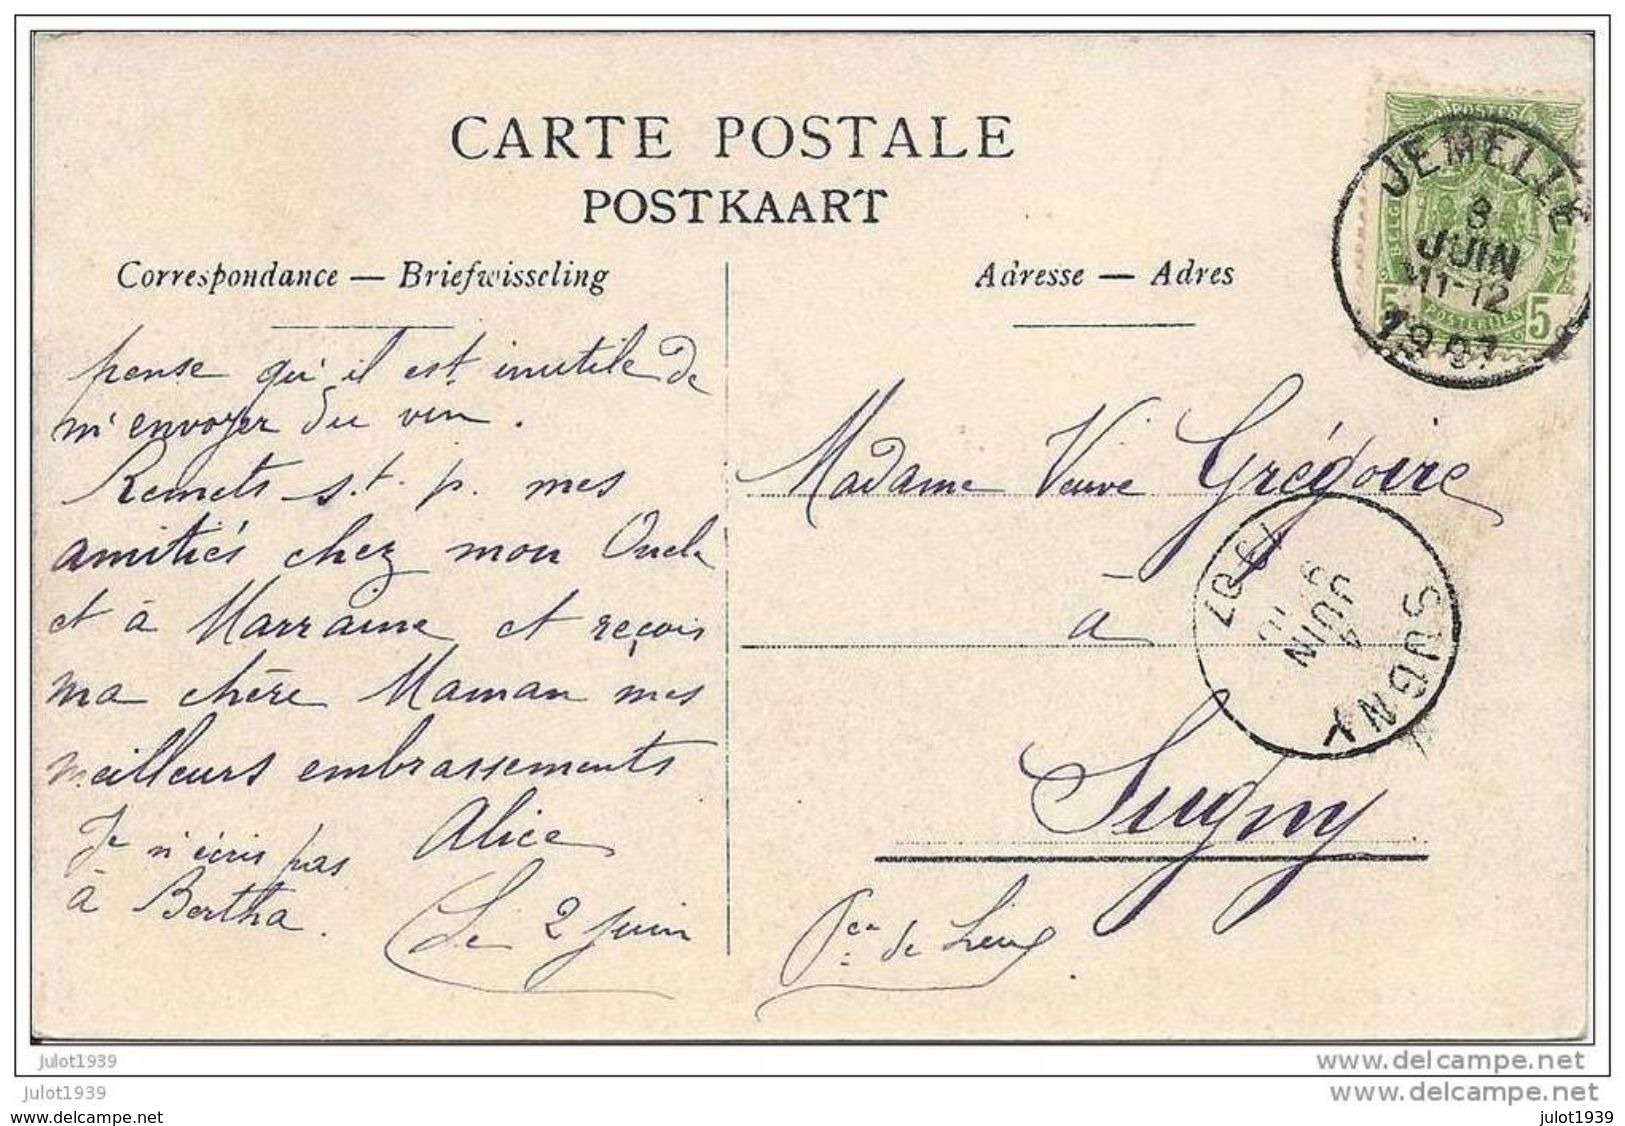 CARTE POSTALE
POSTKAART
Correspondance — Briefwisseling
pense qu'il est inutile de
m'envoyer du vin.
Remets s.t.p. mes
amitiés chez mon Oncle
et à Marraine et reçois
ma chère Maman mes
meilleurs embrassements
Alice
Je n'écris pas
à Bertha.
Le 2 juin
Adresse — Adres
Madame Veuve Grégoire
à
Sugny
Pce de
JEMELLE
3
JUIN
11-12
1907
POSTES
5 5
SUGNY
4
JUIN
1907
julot1939
www.delcampe.net
julot1939
www.delcampe.net
www.delcampe.net
julot1939